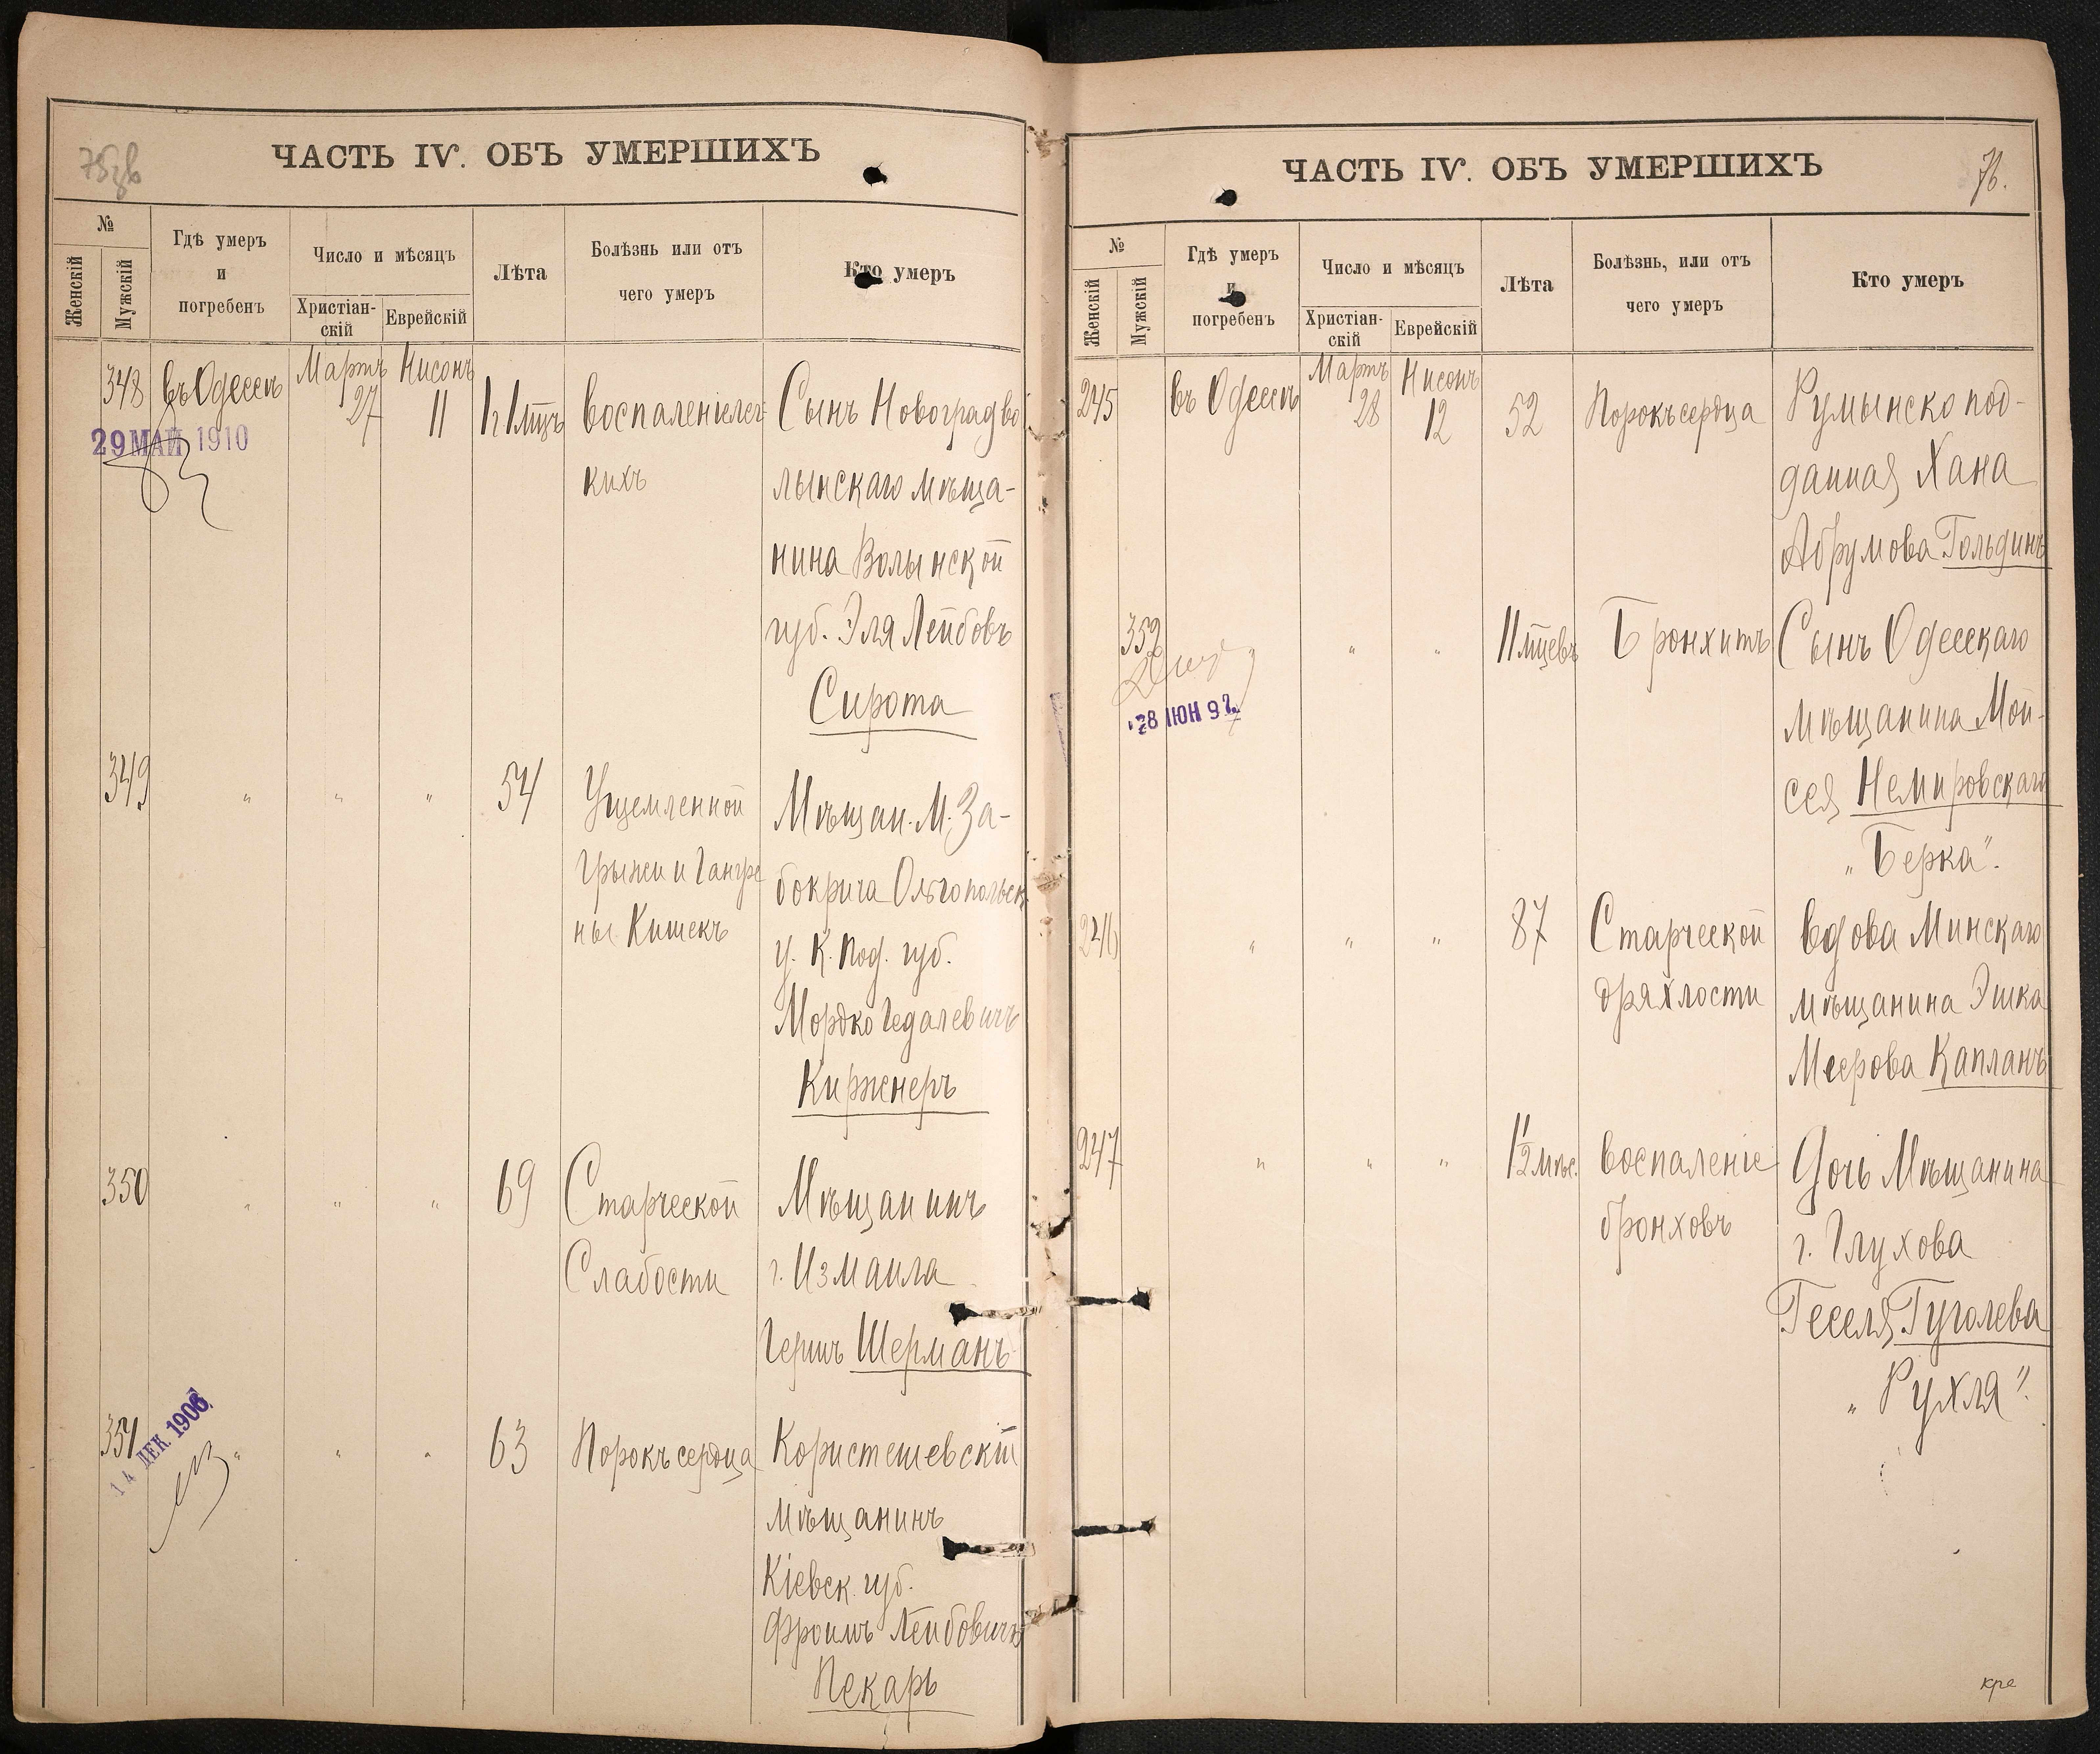 ЧАСТЬ IV. ОБЪ УМЕРШИХЪ
№
Женскій
Мужскій
Гдѣ умеръ
и
погребенъ
Число и мѣсяцъ
Христіан-
скій
Еврейскій
Лѣта
Болѣзнь или отъ
чего умеръ
Кто умеръ
348 въ Одессѣ Мартъ 27 Нисонъ 11 воспаленіе лег- Сынъ Новоградво
29 МАЙ 1910
кихъ лынскаго мѣща-
нина Волынской
губ. Эля Лейбовъ
Сирота
349 " " " 54 Ущемленной Мѣщан. М. За-
грыжи и Гангре бокрича Ольгопольск.
ны Кишекъ у. К. Под. губ.
Мордко Гедалевичъ
Киржнеръ
350 " " " 69 Старческой Мѣщанинъ
Слабости г. Измаила
Гершъ Шерманъ
351 " " " 63 Порокъ сердца Користешевскій
14 ДЕК. 1906
мѣщанинъ
Кіевск. губ.
Фроимъ Лейбовичъ
Пекарь
ЧАСТЬ IV. ОБЪ УМЕРШИХЪ
76.
№
Женскій
Мужскій
Гдѣ умеръ
и
погребенъ
Число и мѣсяцъ
Христіан-
скій
Еврейскій
Лѣта
Болѣзнь, или отъ
чего умеръ
Кто умеръ
245 въ Одессѣ Мартъ 28 Нисонъ 12 52 Порокъ сердца Румынско под-
данная Хана
Абрумова Гольдинъ
352 " " " 11 мцевъ Бронхитъ Сынъ Одесскаго
28 ИЮН 92
мѣщанина Мои-
сея Немировскаго
"Берка".
246 " " " 87 Старческой вдова Минскаго
дряхлости мѣщанина Эшка
Меерова Капланъ
247 " " " 1 1/2 мѣс. воспаленіе Дочь Мѣщанина
бронховъ г. Глухова
Геселя Гуголева
"Рухля".